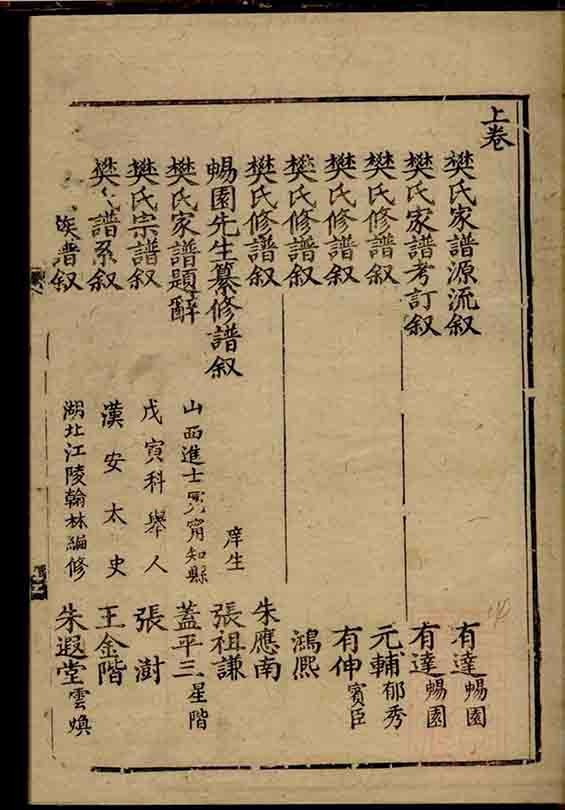 上卷
樊氏家譜源流叙 有達暢園
樊氏家譜考訂叙 有達暢園
樊氏修譜叙 元輔郁秀
樊氏修譜叙 有伸賓臣
樊氏修譜叙 鴻熙
樊氏修譜叙 朱應南
暢園先生纂修譜叙 庠生 張祖謙
樊氏家譜題辭 山西進士 甯知縣 蓋平三星階
樊氏宗譜叙 戊寅科舉人 張澍
樊 譜系叙 漢安太史 王金階
族譜叙 湖北江陵翰林編修 朱遐堂雲煥